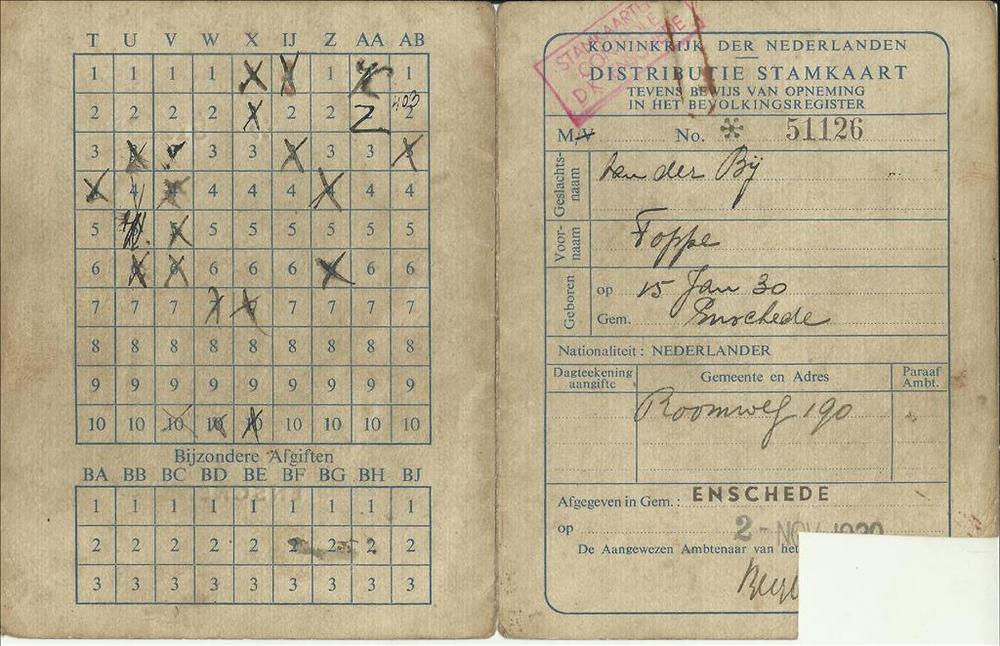 T U V W X IJ Z AA AB
1 1 1 1 1
2 2 2 2 2 Z 403
3 3 3 3 3
4 4 4 4 4 4 4
5 5 5 5 5 5 5
6 6 6 6 6 6
7 7 7 7 7 7 7 7
8 8 8 8 8 8 8 8 8
9 9 9 9 9 9 9 9 9
10 10 10 10 10 10 10 10 10
Bijzondere Afgiften
BA BB BC BD BE BF BG BH BJ
1 1 1 1 1 1 1 1 1
2 2 2 2 2 2 2 2 2
3 3 3 3 3 3 3 3 3
STAMKAARTEN
CONTROLE
KONINKRIJK DER NEDERLANDEN
DISTRIBUTIE STAMKAART
TEVENS BEWIJS VAN OPNEMING
IN HET BEVOLKINGSREGISTER
M, V No. * 51126
Geslachtsnaam van der Bij
Voornaam Foppe
Geboren op 15 Jan 30
Gem. Enschede
Nationaliteit: NEDERLANDER
Dagteekening aangifte Gemeente en Adres Paraaf Ambt.
Roomweg 190
Afgegeven in Gem.: ENSCHEDE
op 2-NOV 1939
De Aangewezen Ambtenaar van het